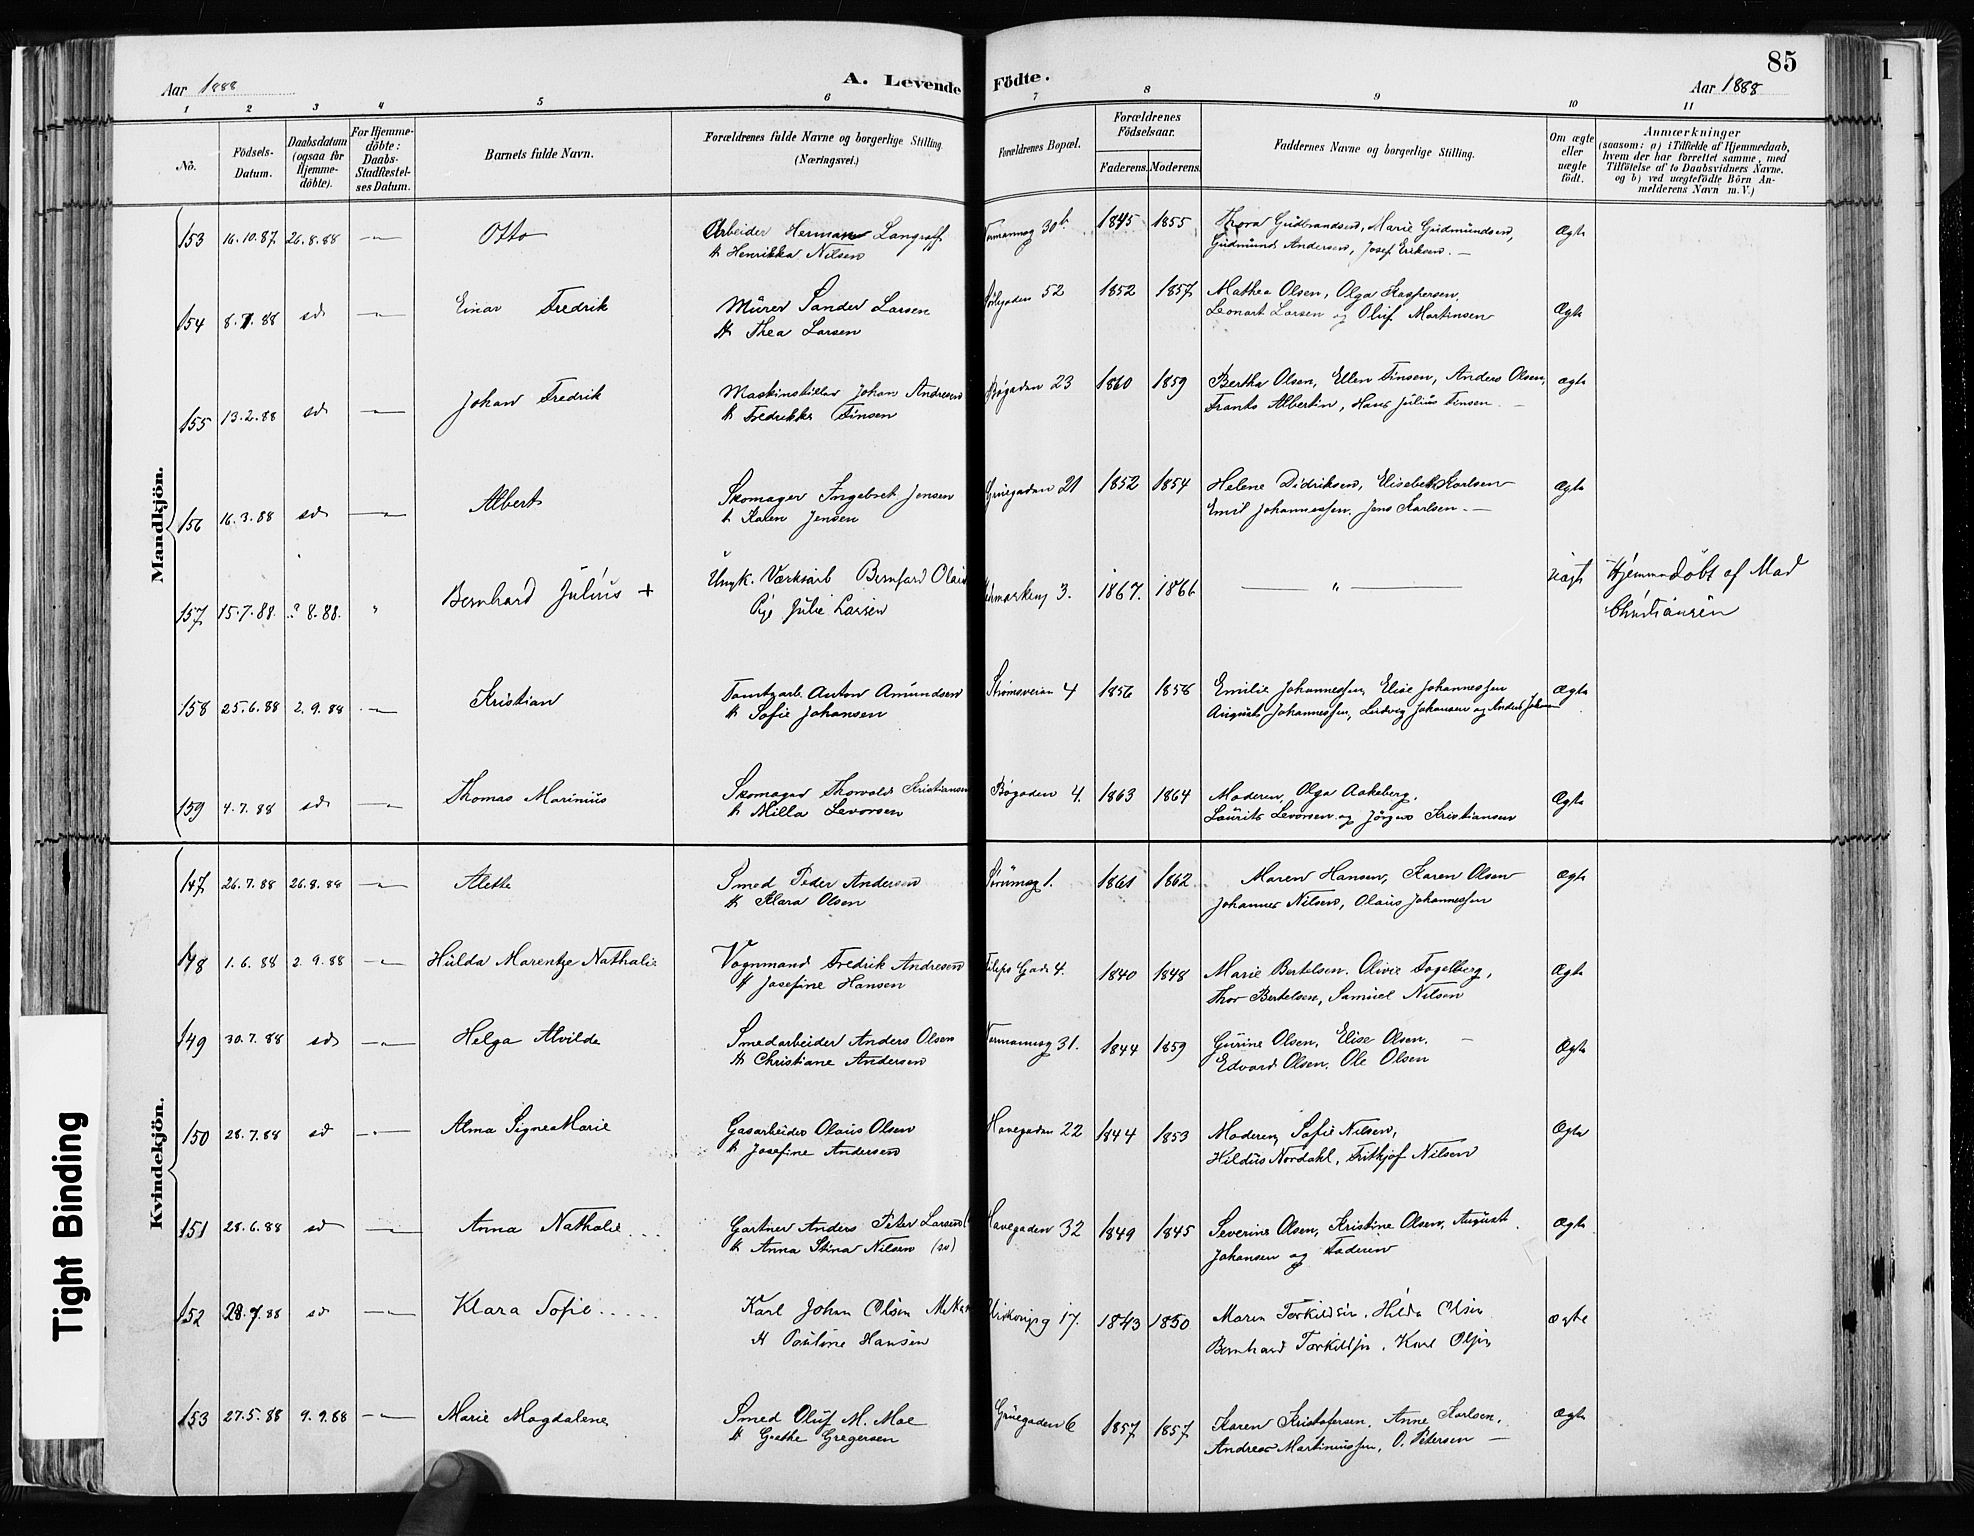 85
1
Aar 1888
A. Levende Födte.
Aar 1888
1 2 3 4 5 6 7 8 9 10 11
No.
Födsels-Datum.
Daabsdatum (ogsaa for Hjemme-döbte).
For Hjemme-döbte: Daabs-Stadfæstel-ses Datum.
Barnets fulde Navn.
Forældrenes fulde Navne og borgerlige Stilling (Næringsvei.)
Forældrenes Bopæl.
Forældrenes Födselsaar.
Faderens. Moderens.
Faddernes Navne og borgerlige Stilling.
Om ægte eller uægte födt.
Anmærkninger
(saasom: a) i Tilfælde af Hjemmedaab,
hvem der har forrettet samme, med
Tilföielse af to Daabsvidners Navne.
og b) ved uægtefödte Börn An-
melderens Navn m. V.)
Mandkjön.
153 16.10.87. 26.8.88 —"— Otto Arbeider Herman Langraff 30b. 1845 1855 Thora Gudbrandsen, Marie Gudmundsen, Ægte
h Henrikka Nilsen Gudmund Andersen, Josef Eriksen. —
154 8.7.88 sd —"— Einar Fredrik Murer Sander Larsen 52 1852 1857 Mathea Olsen, Olga Kaspersen, Ægte
H Thea Larsen Leonart Larsen og Oluf Martinsen
155 13.2.88 sd —"— Johan Fredrik Johan Andresen Bøgaden 23 1860 1859 Bertha Olsen, Ellen Finsen, Anders Olsen, Ægte
h Fredrikke Finsen Frants Albertin, Hans Julius Finsen —
156 16.3.88 sd —"— Albert Skomager Ingebret Jensen Gruegaden 21 1852 1854 Helene Didriksen, Elisebeth Karlsen Ægte
h Karen Jensen Emil Johannessen, Jens Karlsen. —
157 15.7.88. ? 8.88. " Bernhard Julius + Ungk. Bernhard 3. 1867. 1866 — " — Uægt Hjemmedöbt af Mad
Pige Julie Larsen Christiansen
158 25.6.88 2.9.88 —"— Kristian Tomtearb. Anton Amundsen Strømsveien 4 1856 1856 Emilie Johannessen, Elise Johannessen Ægte
h Sofie Johansen August Johannessen, Ludvig Johansen og Anders
159 4.7.88 sd —"— Thomas Marinius Skomager Thorvald Kristiansen Bøgaden 4. 1863 1864 Moderen, Olga Aakeberg, Ægte
h Milla Levorsen Laurits Levorsen og Jörgen Kristiansen
Kvindekjön.
147 26.7.88 26.8.88 —"— Alette Smed Peder Andersen Sørumsg 1. 1861 1862 Maren Hansen, Karen Olsen Ægte
h Klara Olsen Johannes Nilsen, Olaus Johannessen
148 1.6.88 2.9.88 —"— Hulda Marentze Nathalie Vognmand Fredrik Andresen Filips Gade 4. 1840 1848 Marie Bertelsen. Olivie Fogelberg, Ægte
H Josefine Hansen Thor Bertelsen, Samuel Nilsen
149 30.7.88 sd —"— Helga Alvilde Smedarbeider Anders Olsen Normannsg 31. 1844 1859 Gurine Olsen, Elise Olsen, — Ægte
H Christiane Andersen Edvard Olsen, Ole Olsen
150 28.7.88 sd —"— Alma Signe Marie Gasarbeider Olaus Olsen Havegaden 22 1844 1853 Moderen, Sofie Nilsen, Ægte
h Josefine Andersen Hildus Nordahl, Fritkjof Nilsen
151 28.6.88 sd —"— Anna Nathalie Gartner Anders Peter Larsen Havegaden 32 1849 1845 Severine Olsen, Kristine Olsen, August Ægte
h Anna Stina Nilsen (sv) Johansen og Faderen
152 28.7.88 sd —"— Klara Sofie Karl Johan Olsen 17. 1843 1850 Maren Torkildsen, Hilda Olsen Ægte
H Pauline Hansen Bernhard Torkildsen, Karl Olsen
153 27.5.88 9.9.88 —"— Marie Magdalene Smed Oluf M. Moe Gruegaden 6 1857 1857 Karen Kristofersen, Anne Karlsen, Ægte
H Grethe Gregersen Andreas Martiniussen, O. Petersen —
Tight Binding